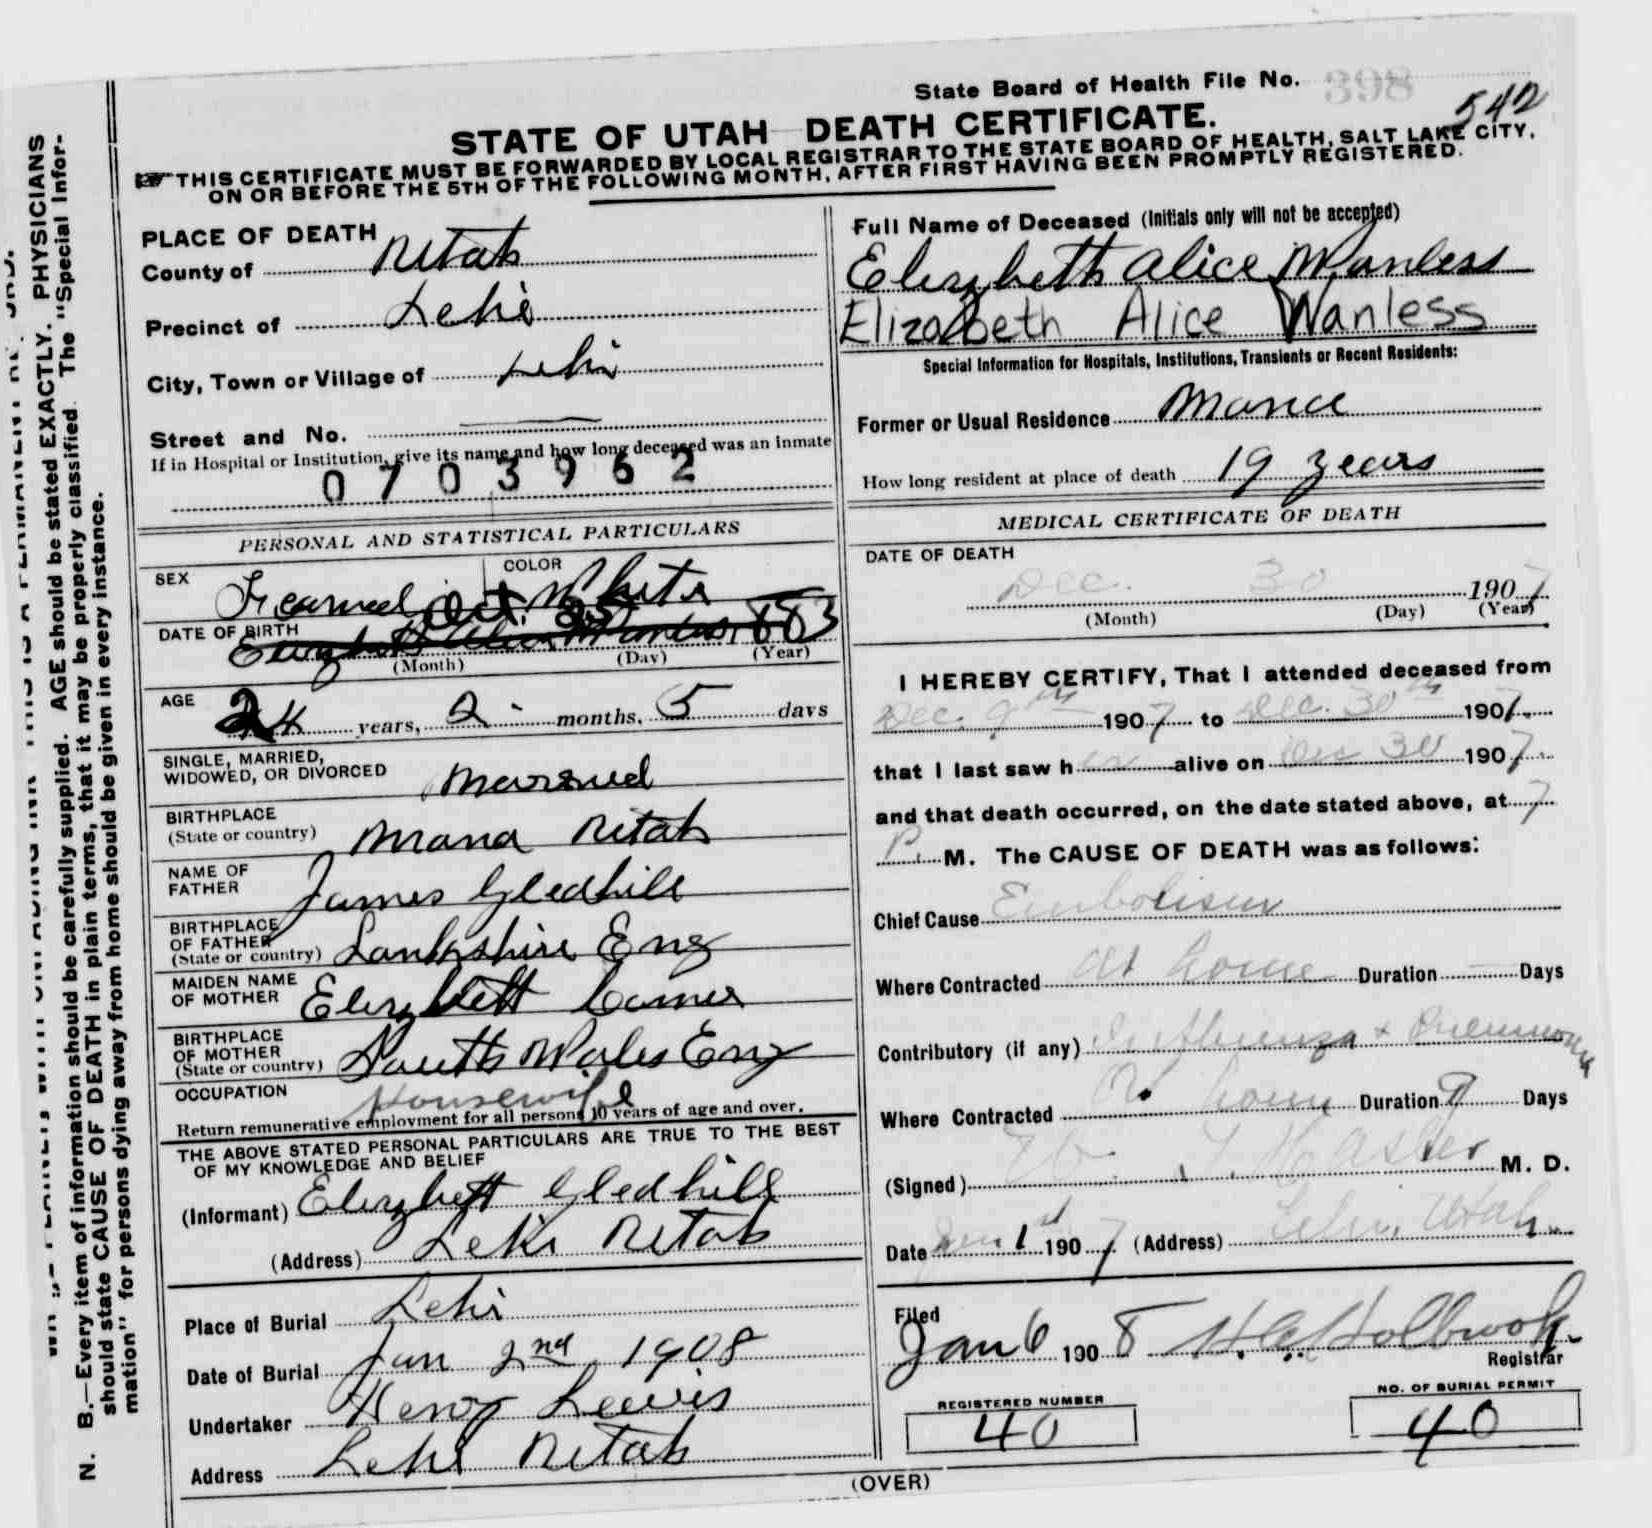 State Board of Health File No. 398
542
STATE OF UTAH DEATH CERTIFICATE.
THIS CERTIFICATE MUST BE FORWARDED BY LOCAL REGISTRAR TO THE STATE BOARD OF HEALTH, SALT LAKE CITY,
ON OR BEFORE THE 5TH OF THE FOLLOWING MONTH, AFTER FIRST HAVING BEEN PROMPTLY REGISTERED.
PLACE OF DEATH
County of Utah
Precinct of Lehi
City, Town or Village of Lehi
Street and No. —
If in Hospital or Institution, give its name and how long deceased was an inmate
0703962
PERSONAL AND STATISTICAL PARTICULARS
SEX Female COLOR White
DATE OF BIRTH Oct. 25 1883
(Month) (Day) (Year)
AGE 24 years, 2 months, 5 days
SINGLE, MARRIED,
WIDOWED, OR DIVORCED Married
BIRTHPLACE
(State or country) Utah
NAME OF
FATHER James Gledhill
BIRTHPLACE
OF FATHER
(State or country) Eng
MAIDEN NAME
OF MOTHER Elizabeth
BIRTHPLACE
OF MOTHER
(State or country) South Wales Eng
OCCUPATION Housewife
Return remunerative employment for all persons 10 years of age and over.
THE ABOVE STATED PERSONAL PARTICULARS ARE TRUE TO THE BEST
OF MY KNOWLEDGE AND BELIEF
(Informant) Elizabeth Gledhill
(Address) Lehi Utah
Place of Burial Lehi
Date of Burial Jan 2nd, 1908
Undertaker Henry Lewis
Address Lehi Utah
Full Name of Deceased (Initials only will not be accepted)
Elizabeth Alice Wanless
Elizabeth Alice Wanless
Special Information for Hospitals, Institutions, Transients or Recent Residents:
Former or Usual Residence
How long resident at place of death 19 years
MEDICAL CERTIFICATE OF DEATH
DATE OF DEATH
Dec. 30 1907
(Month) (Day) (Year)
I HEREBY CERTIFY, That I attended deceased from
Dec. 9th 1907 to Dec. 30th 1907
that I last saw her alive on Dec 30 1907
and that death occurred, on the date stated above, at 7
P. M. The CAUSE OF DEATH was as follows:
Chief Cause Embolism
Where Contracted At home Duration — Days
Contributory (if any) Influenza + Pneumonia
Where Contracted At home Duration 9 Days
(Signed) M. D.
Date Jan 1st 1907 (Address) Lehi, Utah.
Filed
Jan 6 1908 Holbrook
Registrar
REGISTERED NUMBER
40
NO. OF BURIAL PERMIT
40
(OVER)
N. B.—Every item of information should be carefully supplied. AGE should be stated EXACTLY. PHYSICIANS
should state CAUSE OF DEATH in plain terms, that it may be properly classified. The "Special Infor-
mation" for persons dying away from home should be given in every instance.